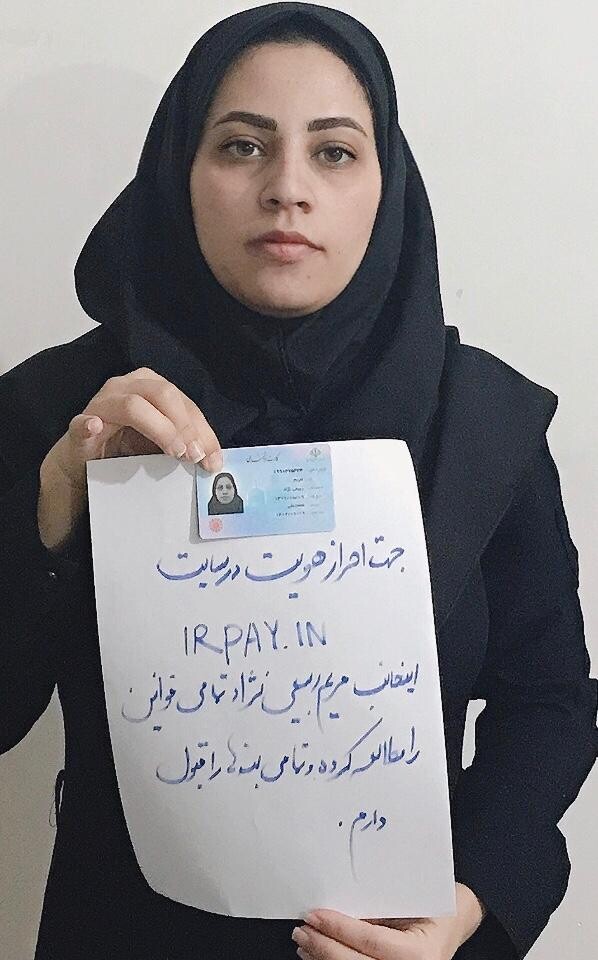 کارت شناسایی ملی
جهت احراز هویت در سایت
IRPAY.IN
اینجانب مریم ربیعی نژاد تمامی قوانین
را مطالعه کرده و تمامی بندها را قبول
دارم.